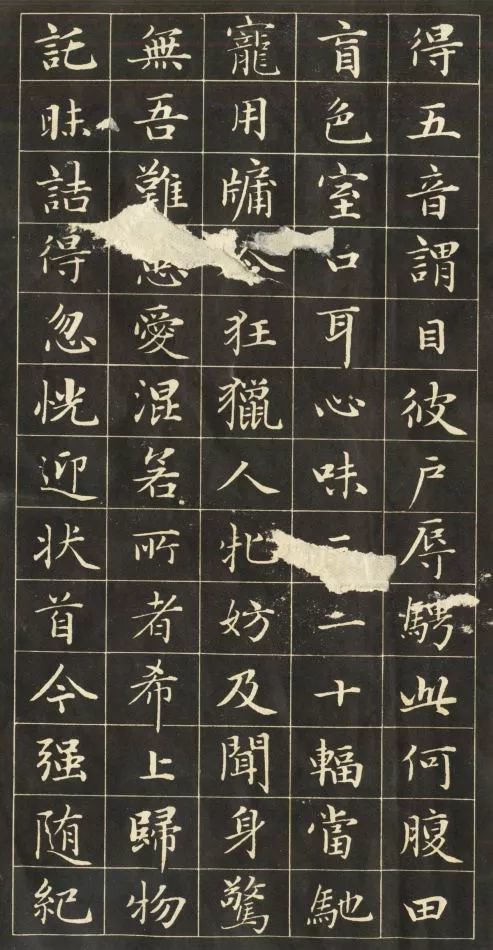 得五音謂目彼戶辱騁此何腹田
盲色室口耳心味二十輻當馳
寵用牖狂獵人牝妨及聞身驚
無吾難愛混若所者希上歸物
託昧詰得忽恍迎狀首今强随紀